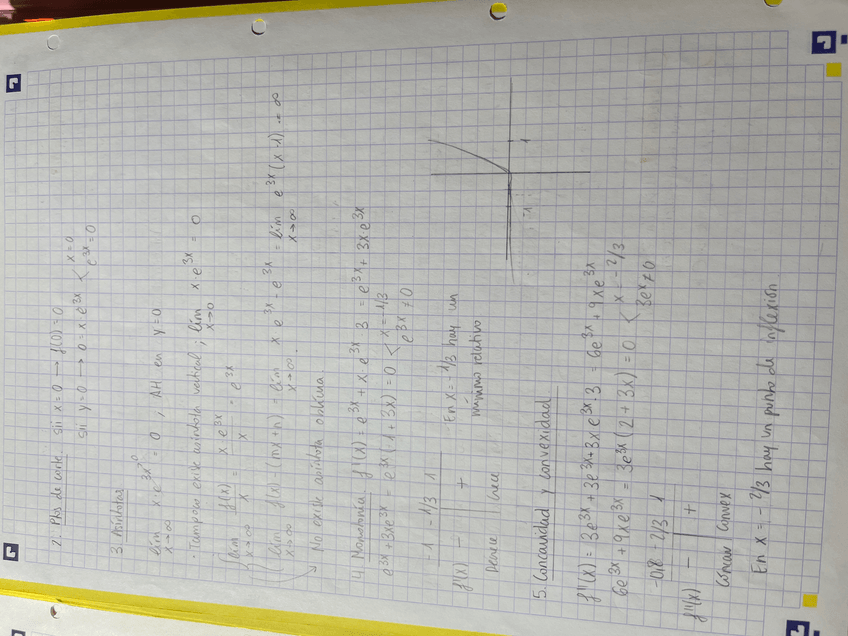 2. Ptos de corte. si x=0 → f(0)=0
si y=0 → 0=x e^3x < x=0
e^3x=0
3. Asíntotas
lim x·e^3x = 0 ; AH en y=0
x→∞
· Tampoco existe asíntota vertical ; lim x e^3x = 0
x→0
lim f(x)/x = x e^3x/x = e^3x
x→∞
lim f(x)-(mx+n) = lim x e^3x - e^3x = lim e^3x (x-1) = ∞
x→∞ x→∞ x→∞
→ No existe asíntota oblicua.
4. Monotonía f'(x) = e^3x + x e^3x 3 = e^3x + 3x e^3x
e^3x+3xe^3x = e^3x (1+3x) = 0 < x = -1/3
e^3x ≠ 0
-1 -1/3 1
f'(x) - +
Decrece Crece
En x = -1/3 hay un
mínimo relativo
-1 1
5. Concavidad y convexidad
f''(x) = 3e^3x + 3e^3x + 3x e^3x·3 = 6e^3x + 9xe^3x
6e^3x + 9xe^3x = 3e^3x (2+3x) = 0 < x = -2/3
3e^x ≠ 0
-0,8 2/3 1
f''(x) - +
Cóncav Convex
En x = -2/3 hay un punto de inflexión.